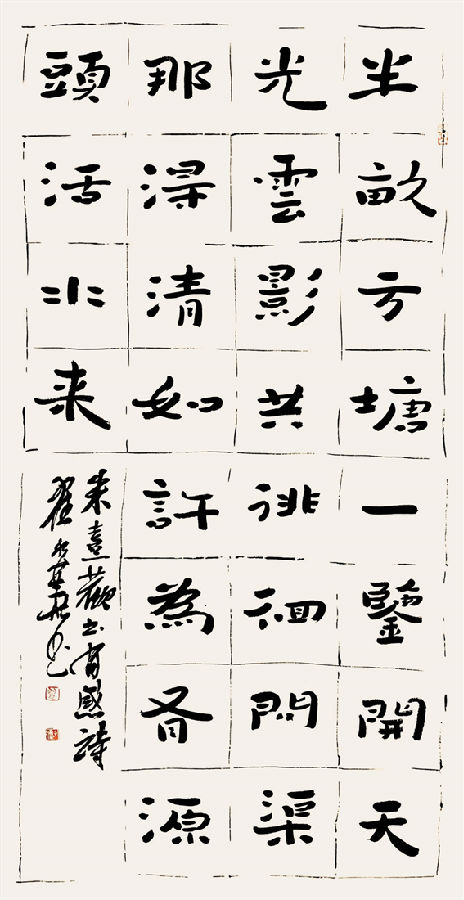 半畝方塘一鑒開天
光雲影共徘徊問渠
那淂清如許為有源
頭活水来
朱熹觀书有感詩
翟书